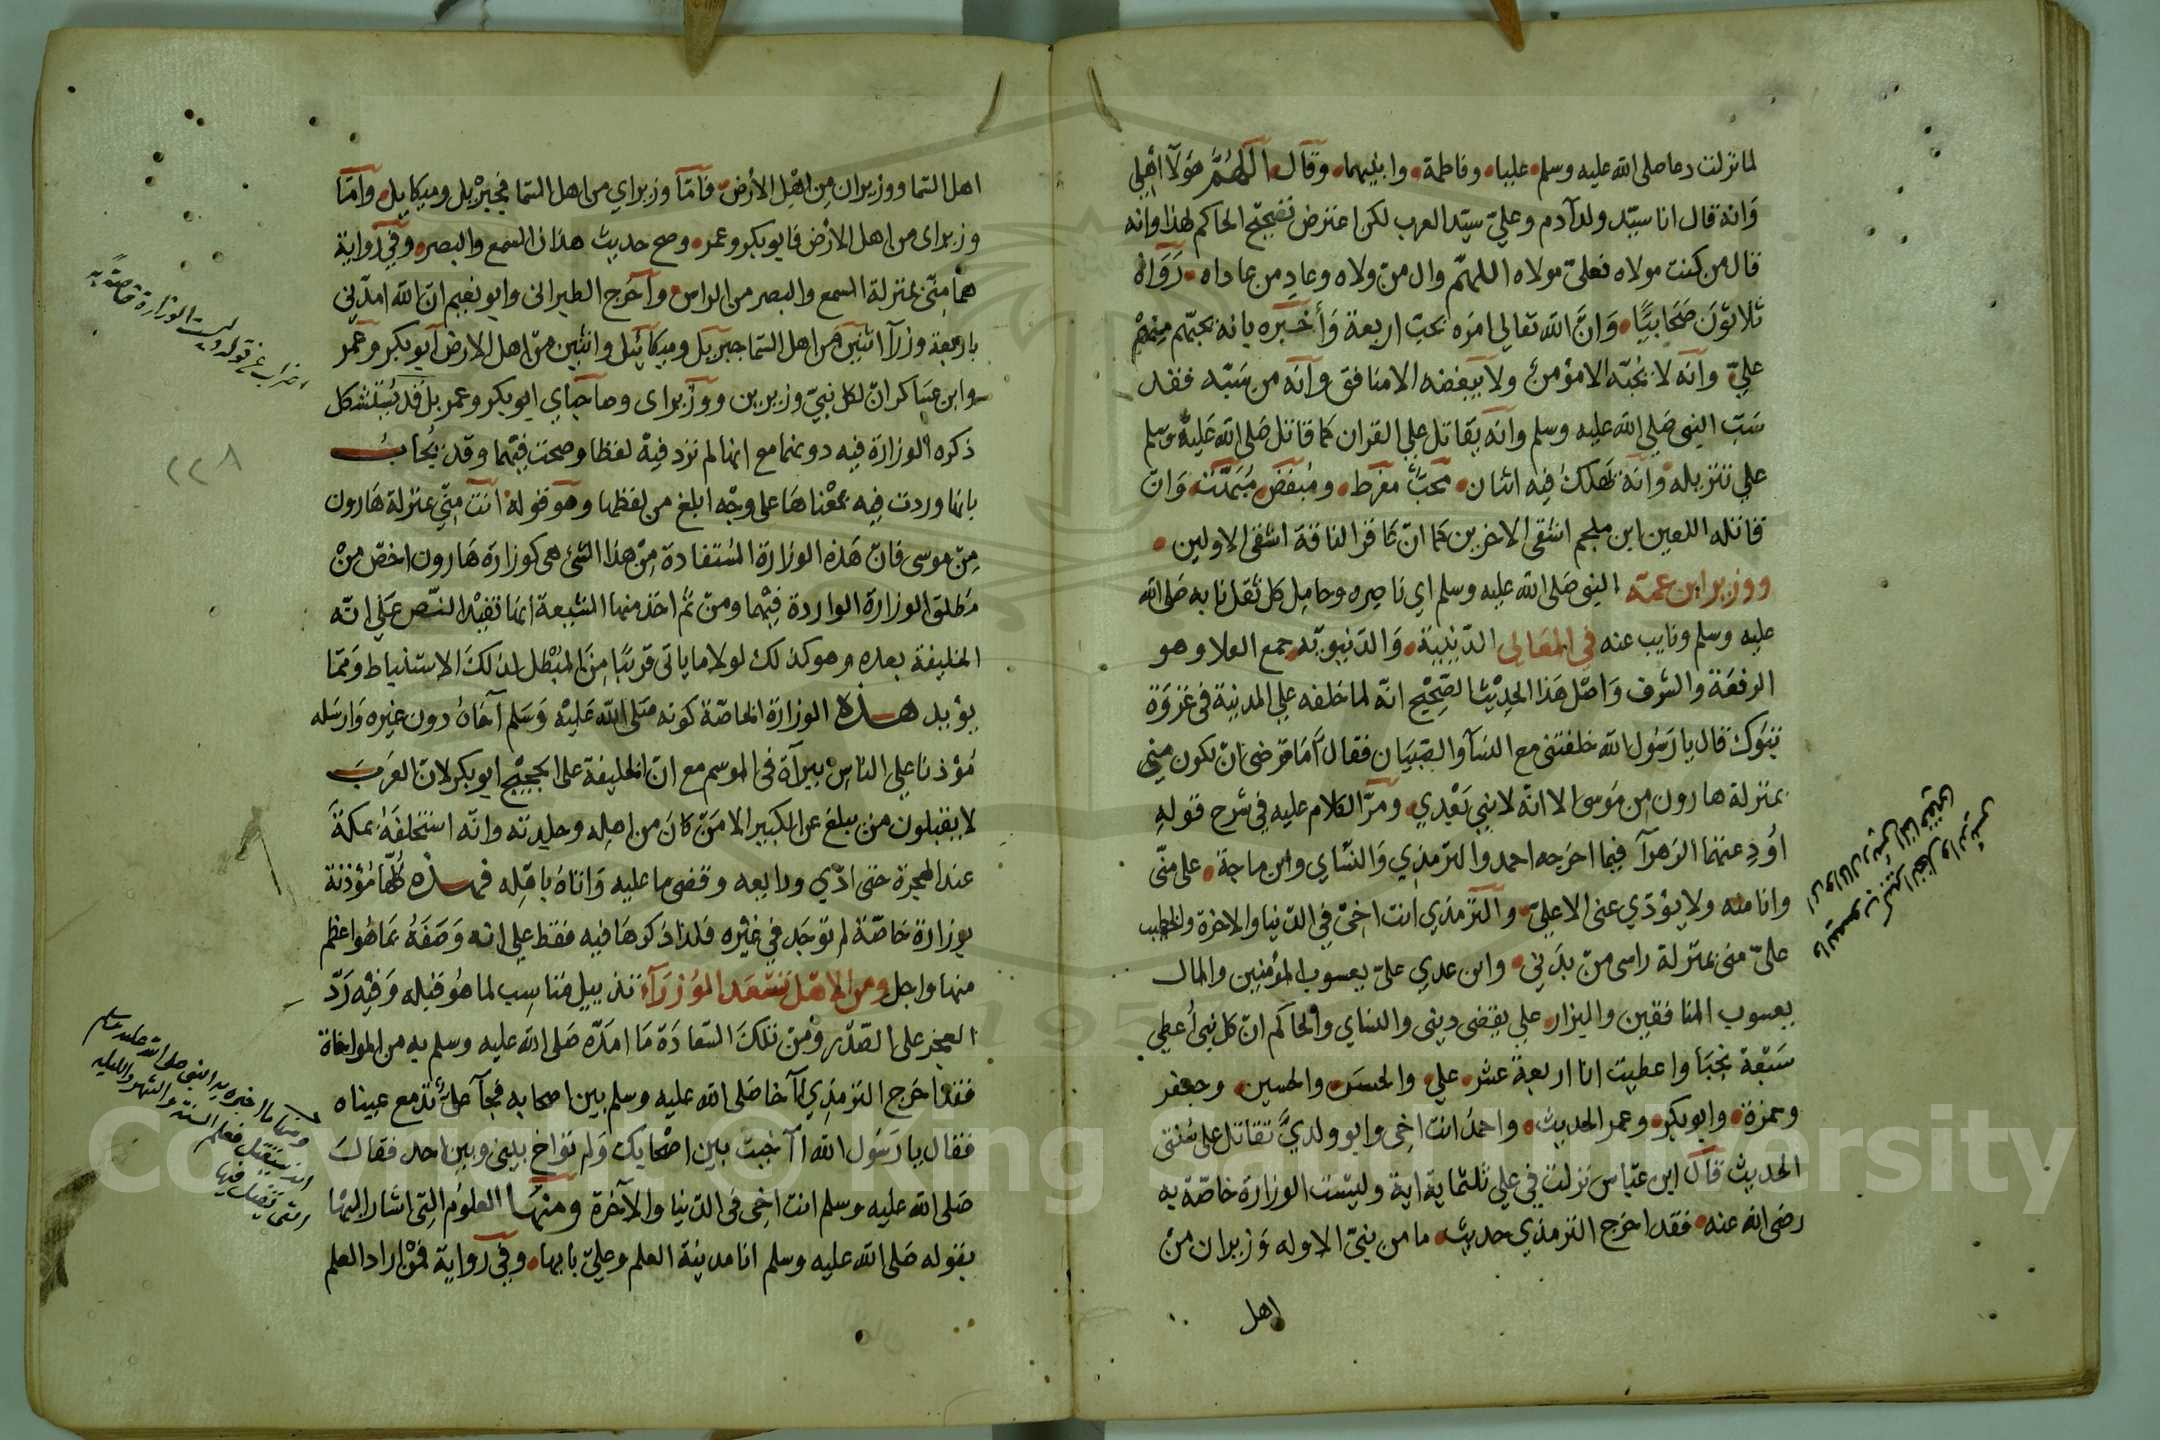 لما نزلت دعا صلى الله عليه وسلم عليا وفاطمة وابنيهما وقال اللهم هولآ اهلي
وانه قال انا سيد ولد آدم وعلي سيد العرب لكن اعترض تصحيح الحاكم لهذا وانه
قال من كنت مولاه فعلي مولاه اللهم وال من ولاه وعاد من عاداه رواه
ثلاثون صحابيا وان الله تعالى امره بحب اربعة وأخبره بانه يحبهم منهم
علي وانه لا يحبه الا مؤمن ولا يبغضه الا منافق وانه من سبه فقد
سب النبي صلى الله عليه وسلم وانه يقاتل على القران كما قاتل صلى الله عليه وسلم
على تنزيله وانه يهلك فيه اثنان محب مفرط ومبغض مبهت وان
قاتله اللعين ابن ملجم اشقى الاخرين كما ان عاقر الناقة اشقى الاولين
ووزير ابن عمه النبي صلى الله عليه وسلم اي ناصره وحامل كل ثقل نابه صلى الله
عليه وسلم ونايب عنه في المعالي الدينية والدنيوية جمع العلا وهو
الرفعة والشرف واصل هذا الحديث الصحيح انه لما خلفه على المدينة في غزوة
تبوك قال يا رسول الله خلفتني مع النسآ والصبيان فقال أما ترضى ان تكون مني
بمنزلة هارون من موسى الا انه لا نبي بعدي ومر الكلام عليه في شرح قوله
اود عتهما الزهرآ فيما اخرجه احمد والترمذي والنساي وابن ماجة علي مني
وانا منه ولا يؤدي عني الا علي والترمذي انت اخي في الدنيا والاخرة والخطيب
علي مني بمنزلة راسي من بدني وابن عدي علي يعسوب المؤمنين والمال
يعسوب المنافقين والبزار علي يقضي ديني والنساي والحاكم ان كل نبي أعطي
سبعة نجبا واعطيت انا اربعة عشر علي والحسن والحسين وجعفر
وحمزة وابو بكر وعمر الحديث واحمد انت اخي وابو ولدي تقاتل على سنتي
الحديث قال ابن عباس نزلت في علي ثلثماية اية وليست الوزارة خاصة به
رضي الله عنه فقد اخرج الترمذي حديث ما من نبي الا وله وزيران من
اهل
اهل السما ووزيران من اهل الارض فاما وزيراي من اهل السما فجبريل وميكاييل واما
وزيراي من اهل الارض فابو بكر وعمر وصح حديث هذان السمع والبصر وفي رواية
هما مني بمنزلة السمع والبصر من الراس وآخرج الطبراني وابو نعيم ان الله امدني
باربعة وزرآ اثنين من اهل السما جبريل وميكائيل واثنين من اهل الارض آبو بكر وعمر
وابن عساكر ان لكل نبي وزيرين ووزيراي وصاحباي ابو بكر وعمر بل قد يستشكل
ذكره الوزارة فيه دونهما مع انها لم ترد فيه لفظا وصحت فيهما وقد يجاب
بانها وردت فيه بمعناها على وجه ابلغ من لفظها وهو قوله انت مني بمنزلة هارون
من موسى فان هذه الوزارة المستفادة من هذا الشئ هي كوزارة هارون اخص من
مطلق الوزارة الواردة فيهما ومن ثم اخذ منها الشيعة انها تفيد النص على انه
الخليفة بعده وهو كذلك لولا ما ياتي قريبا من المبطل لذلك الاستنباط ومما
يؤيد هذه الوزارة الخاصة كونه صلى الله عليه وسلم آخاه دون غيره وارسله
مؤذنا على الناس ببرآة في الموسم مع ان الخليفة على الحجيج ابو بكر لان العرب
لا يقبلون من يبلغ عن الكبير الا من كان من اهله وجلدته وانه استخلفه بمكة
عند الهجرة حتى ادي ودايعه وقضى ما عليه واتاه باهله فهذه كلها مؤذنة
بوزارة خاصة لم توجد في غيره فلذا ذكرها فيه فقط على انه وصفه بما هو اعظم
منها واجل ومن الاهل تسعد الوزرآ تذييل مناسب لما هو قبله وفيه رد
العجز على الصدر ومن تلك السعادة ما امده صلى الله عليه وسلم به من المواخاة
فقد اخرج الترمذي لما آخا صلى الله عليه وسلم بين اصحابه فجآ علي تدمع عيناه
فقال يا رسول الله آخيت بين اصحابك ولم تواخ بيني وبين احد فقال
صلى الله عليه وسلم انت اخي في الدنيا والآخرة ومنها العلوم التي اشار اليها
بقوله صلى الله عليه وسلم انا مدينة العلم وعلي بابها وفي رواية فمن اراد العلم
اضراب عن قوله وليست الوزارة خاصة به
٢٢٨
ومنها ما اخبره به النبي صلى الله عليه وسلم
انه سيقتل فعلم السنة والشهر والليله
التي يقتل فيها
Copyright © King Saud University
1957